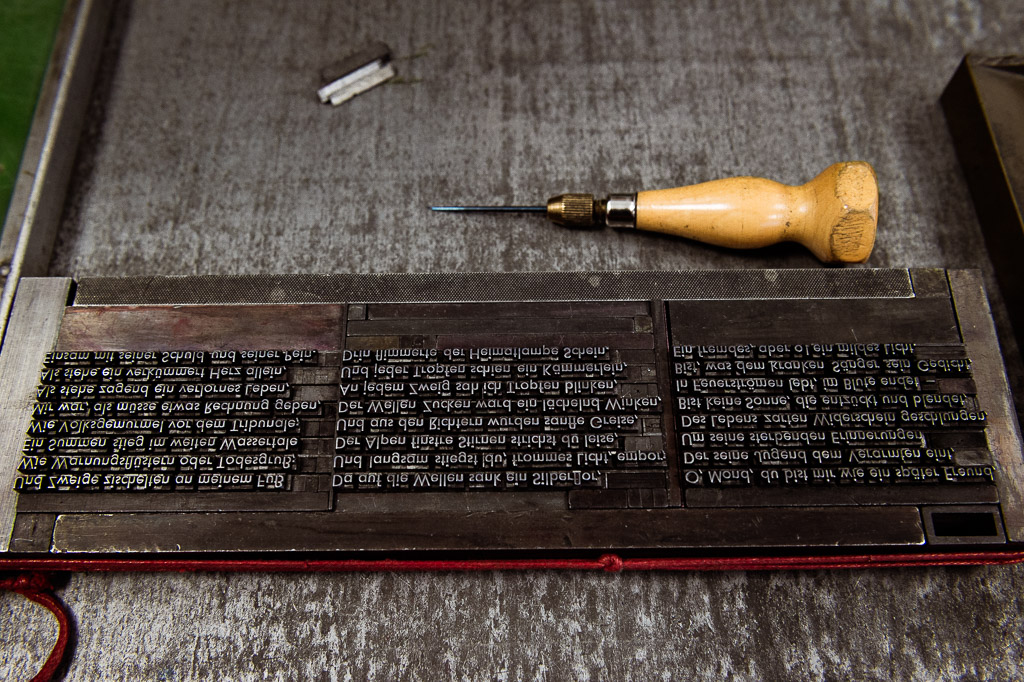 Und Zweige zischelten an meinem Fuß,
Wie Warnungsflüstern oder Todesgruß,
Ein Summen stieg im weiten Wassertale
Wie Volksgemurmel vor dem Tribunale;
Mir war, als müsse etwas Rechnung geben,
Als stehe zagend ein verlornes Leben,
Als stehe ein verkümmert Herz allein,
Einsam mit seiner Schuld und seiner Pein.
Da auf die Wellen sank ein Silberflor,
Und langsam stiegst du, frommes Licht, empor;
Der Alpen finstre Stirnen strichst du leise,
Und aus den Richtern wurden sanfte Greise;
Der Wellen Zucken ward ein lächelnd Winken,
An jedem Zweig sah ich Tropfen blinken,
Und jeder Tropfen schien ein Kämmerlein,
Drin flimmerte der Heimatlampe Schein.
O, Mond, du bist mir wie ein später Freund,
Der seine Jugend dem Verarmten eint,
Um seine sterbenden Erinnerungen
Des Lebens zarten Widerschein geschlungen,
Bist keine Sonne, die entzückt und blendet,
In Feuerströmen lebt, im Blute endet –
Bist, was dem kranken Sänger sein Gedicht,
Ein fremdes, aber o! ein mildes Licht.